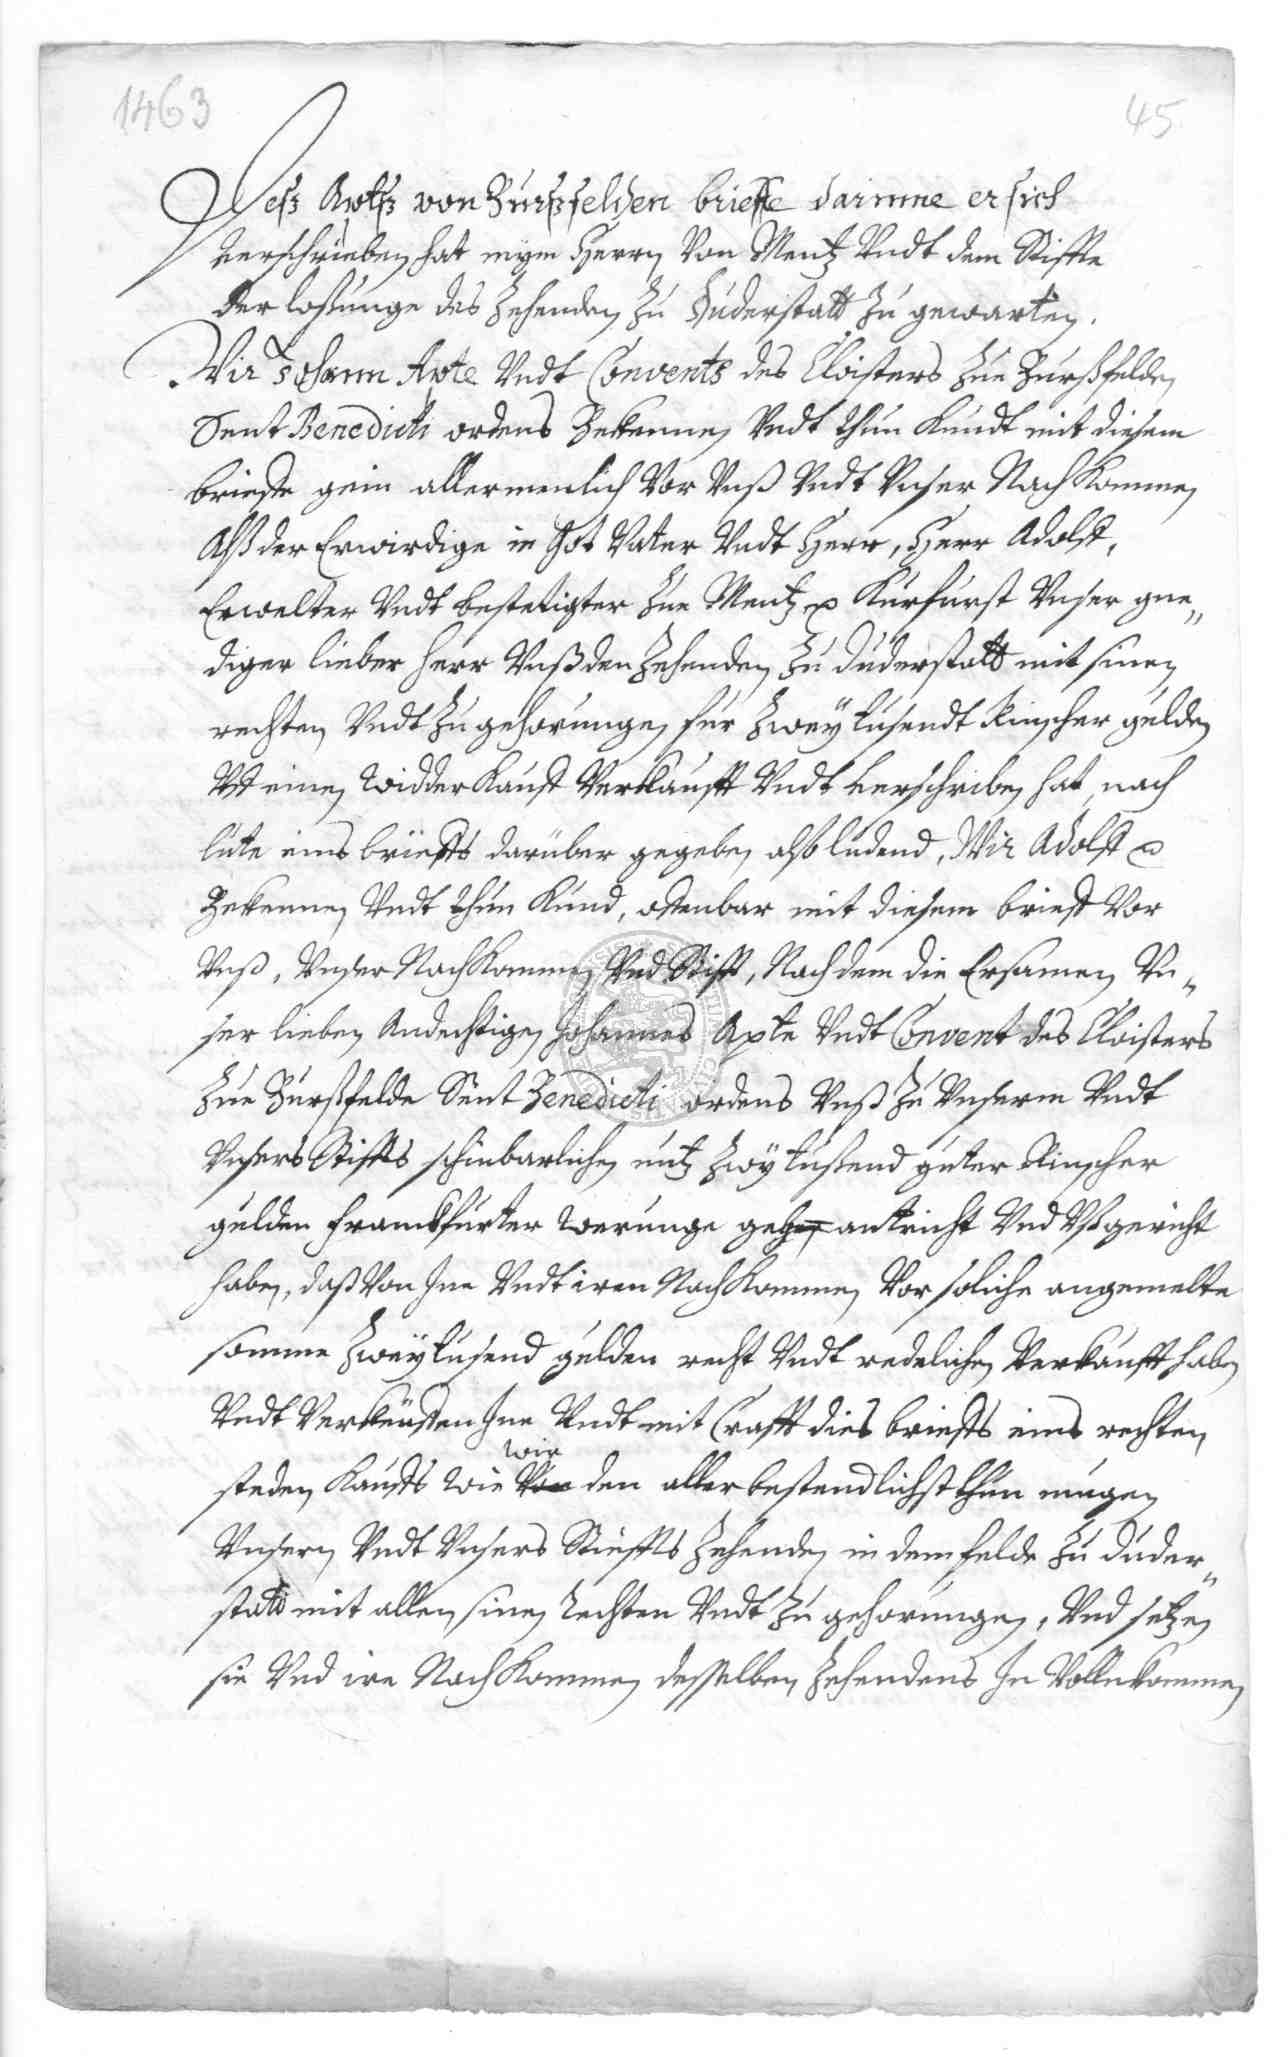 1463
45
Deß Aptß von Burßfelden brieffe darinne er sich
verschrieben hat mym Herrn Von Mentz Vndt dem Stiffte
der losunge des Zehenden Zu Duderstatt Zu gewarten.
Wir Johann Apte Vndt Convents des Cloisters Zue Burßfelden
Sent Benedicti ordens Bekennen Vndt thun Kundt mit diesem
brieffe gein allermenlich Vor Vnß Vndt Vnser NachKommen
Alß der Erwirdige in Got Vater Vndt Herr, Herr Adolff,
Erwelter Vndt bestetigter Zue Mentz Kurfurst Vnser gne„
diger lieber Herr Vnß den Zehenden Zu Duderstatt mit sinen
rechten Vndt Zugehorungen fur Zweytusendt Rinscher gulden
Vff einen widderKauff Verkaufft Vndt verschriben hat, nach
lute eins brieffs daruber gegeben also ludend, Wir Adolff
Bekennen Vndt thun Kund, offenbar mit diesem brieff Vor
Vnß, Vnser NachKommen Vnd Stifft, Nach dem die Ersamen Vn„
ser lieben Andechtigen Johannes Apte Vndt Convent des Cloisters
Zue Burßfelde Sent Benedicti ordens Vnß Zu Vnserm Vndt
Vnsers Stiffts schinbarlichen nutz Zwytusend guter Rinscher
gulden franckfurter werunge antricht Vnd Vßgericht
haben, daß Von Jne Vndt iren NachKommen Vor soliche angemelte
somme Zweytusend gulden recht Vndt redelichen Verkaufft haben
Vndt Verkeuffen Jne Vndt mit Crafft dies brieffs eins rechten
steden Kauffs wie wir den allerbestendlichst thun mugen
Vnsern Vndt Vnsers Stieffts Zehenden in dem felde Zu Duder„
statt mit allen sinen rechten Vndt Zugehorungen, Vnd setzen
sie Vnd ire NachKommen desselben Zehendens Jn Vollnkommen